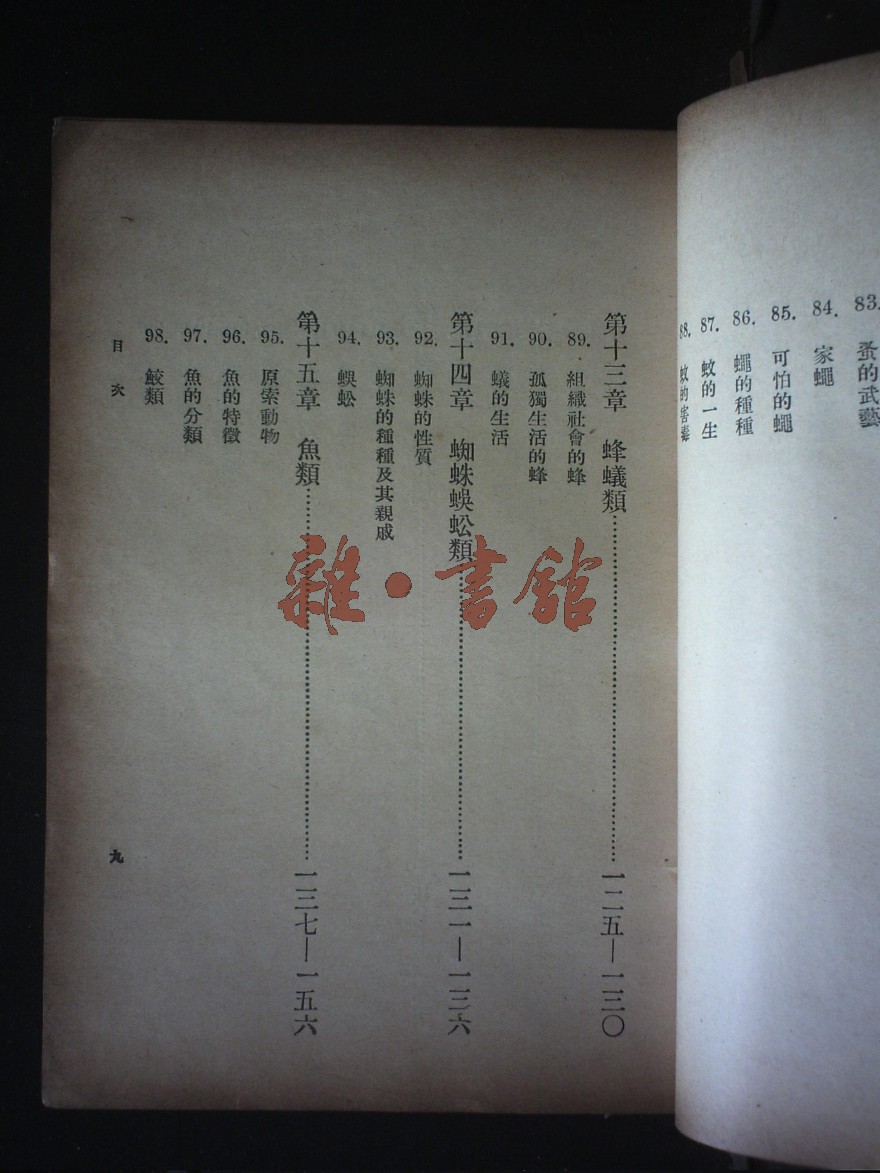 83. 蚤的武藝
84. 家蠅
85. 可怕的蠅
86. 蠅的種種
87. 蚊的一生
88. 蚊的害毒
第十三章 蜂蟻類…………一二五—一三〇
89. 組織社會的蜂
90. 孤獨生活的蜂
91. 蟻的生活
第十四章 蜘蛛蜈蚣類…………一三一—一三六
92. 蜘蛛的性質
93. 蜘蛛的種種及其親戚
94. 蜈蚣
第十五章 魚類…………一三七—一五六
95. 原索動物
96. 魚的特徵
97. 魚的分類
98. 鮫類
目次
九
雜·書館